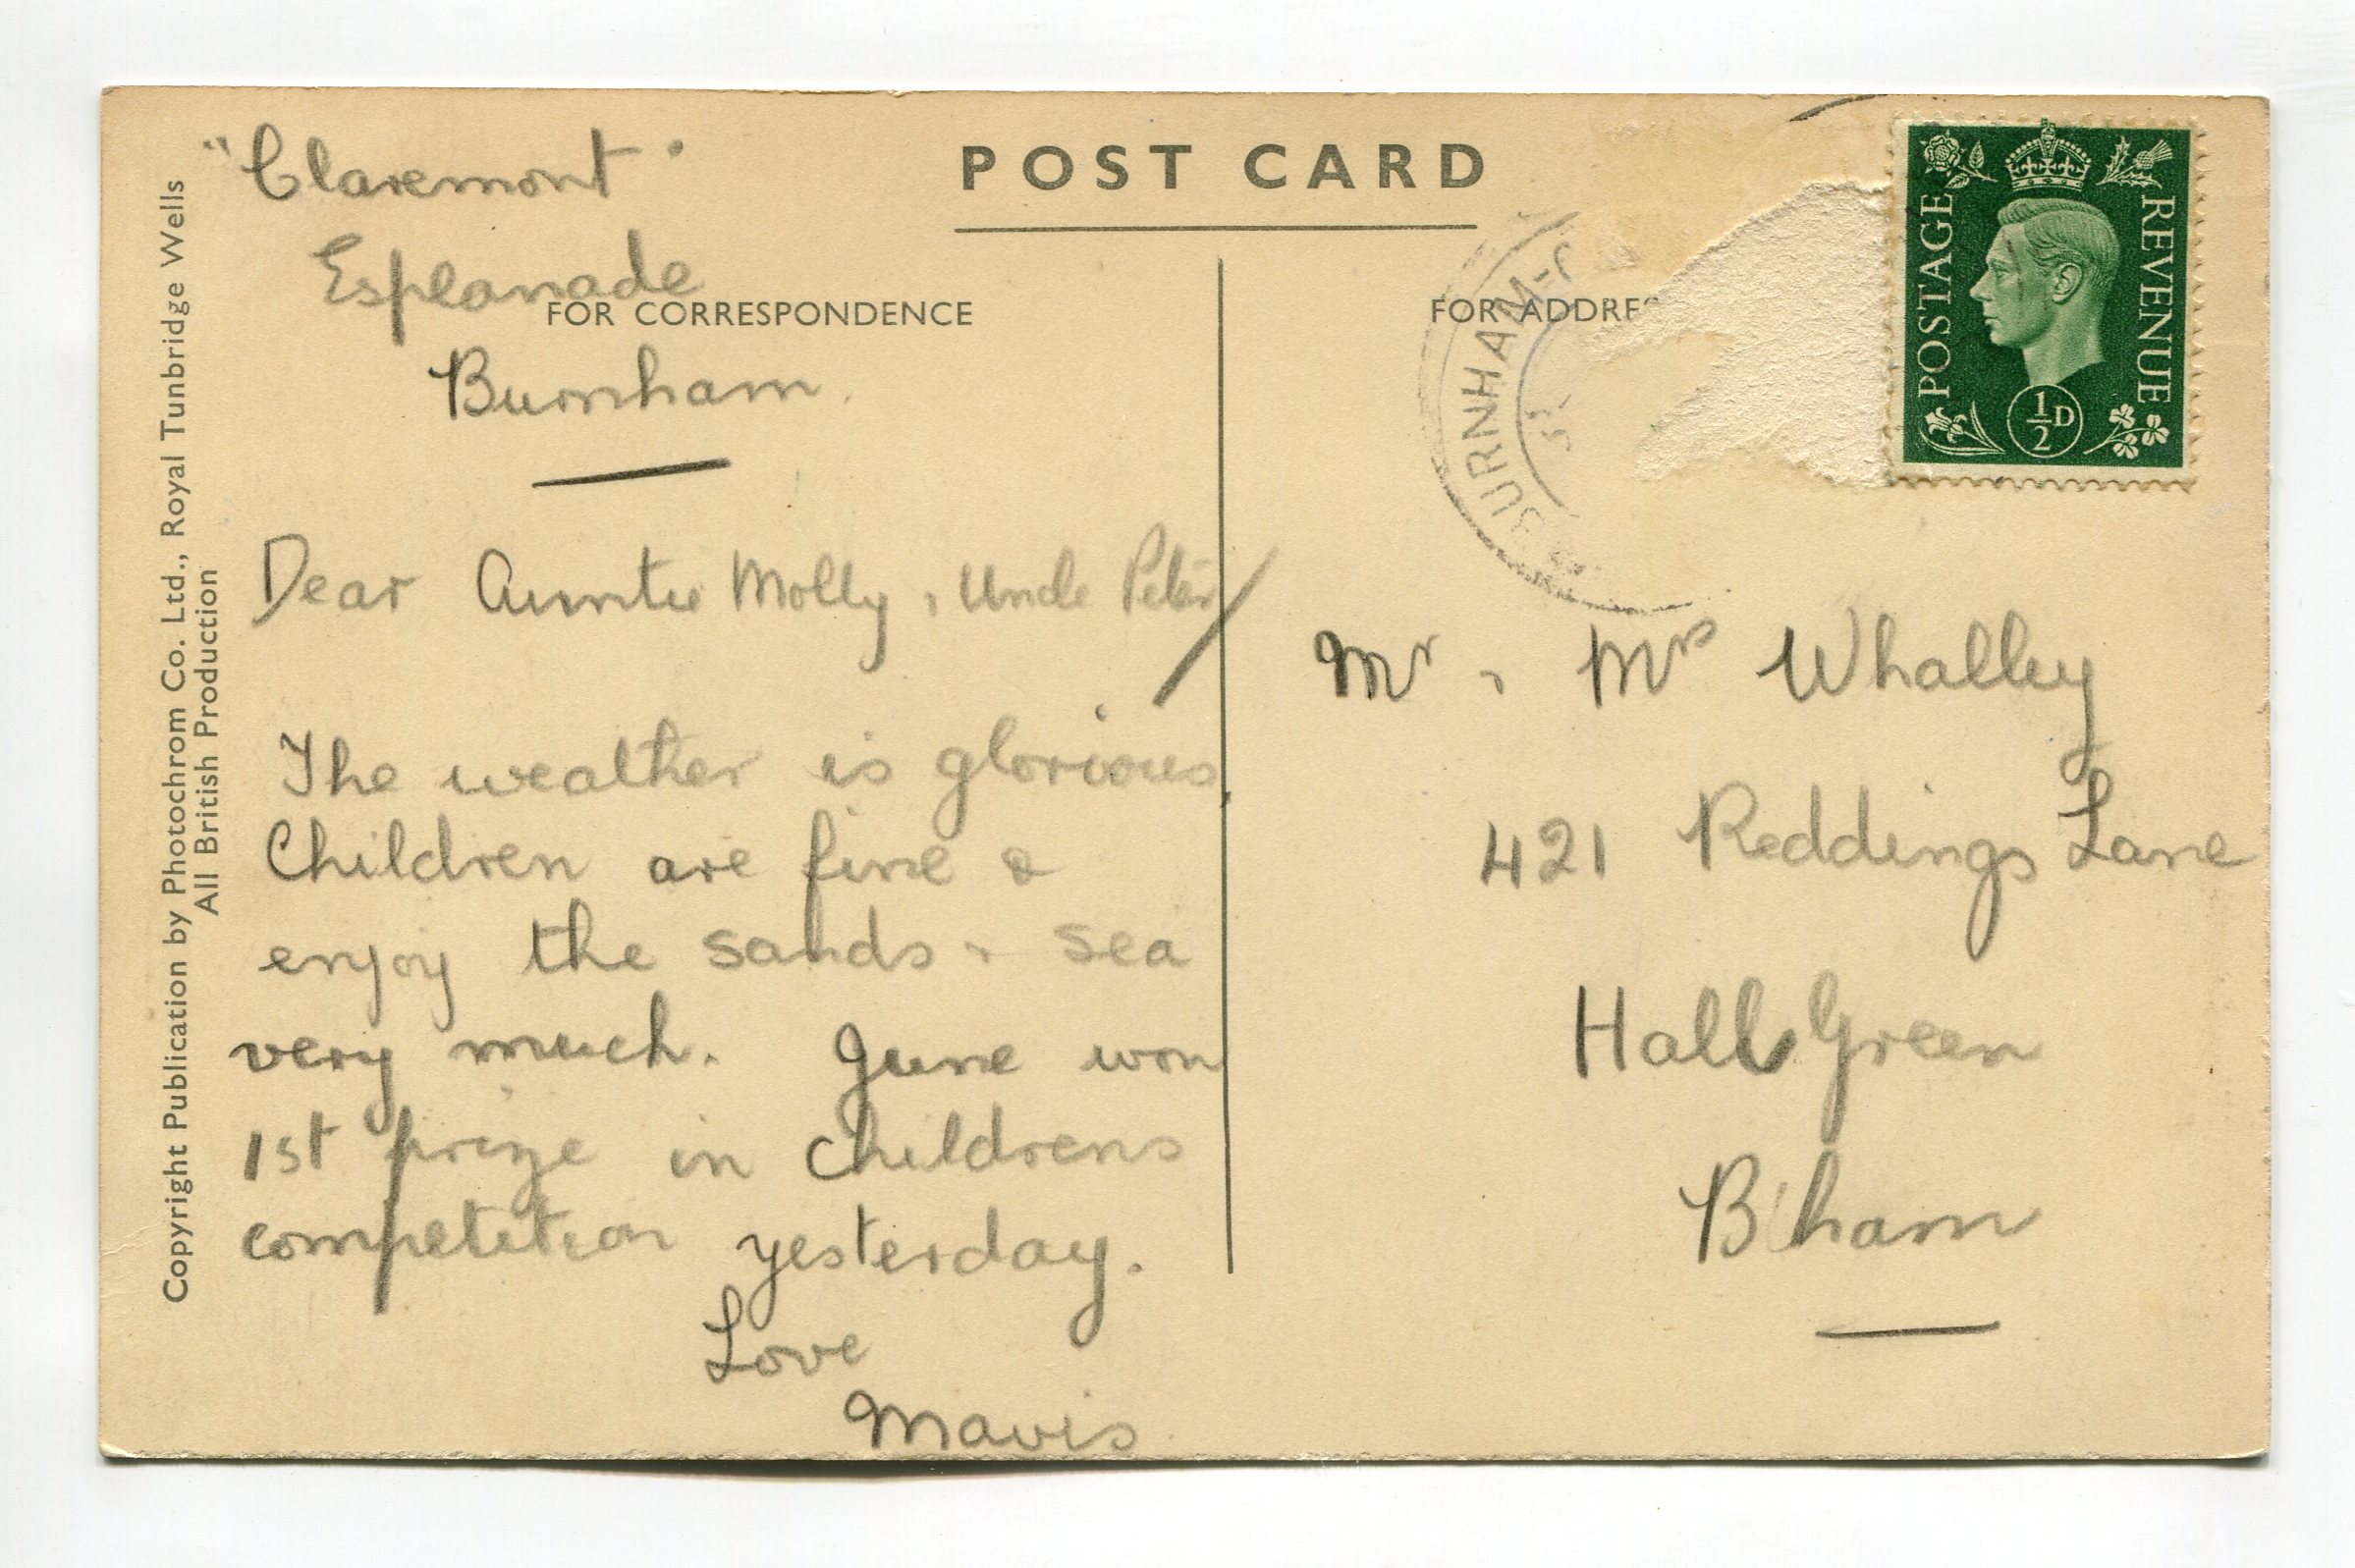 POST CARD
"Claremont"
Esplanade
FOR CORRESPONDENCE
Burnham.
Dear Auntie Molly & Uncle Peter
The weather is glorious,
Children are fine &
enjoy the sands & sea
very much. June won
1st prize in childrens
competition yesterday.
Love
Mavis
FOR ADDRES
BURNHAM-
POSTAGE
REVENUE
½D
Mr & Mrs Whalley
421 Reddings Lane
Hall Green
B'ham
Copyright Publication by Photochrom Co. Ltd., Royal Tunbridge Wells
All British Production